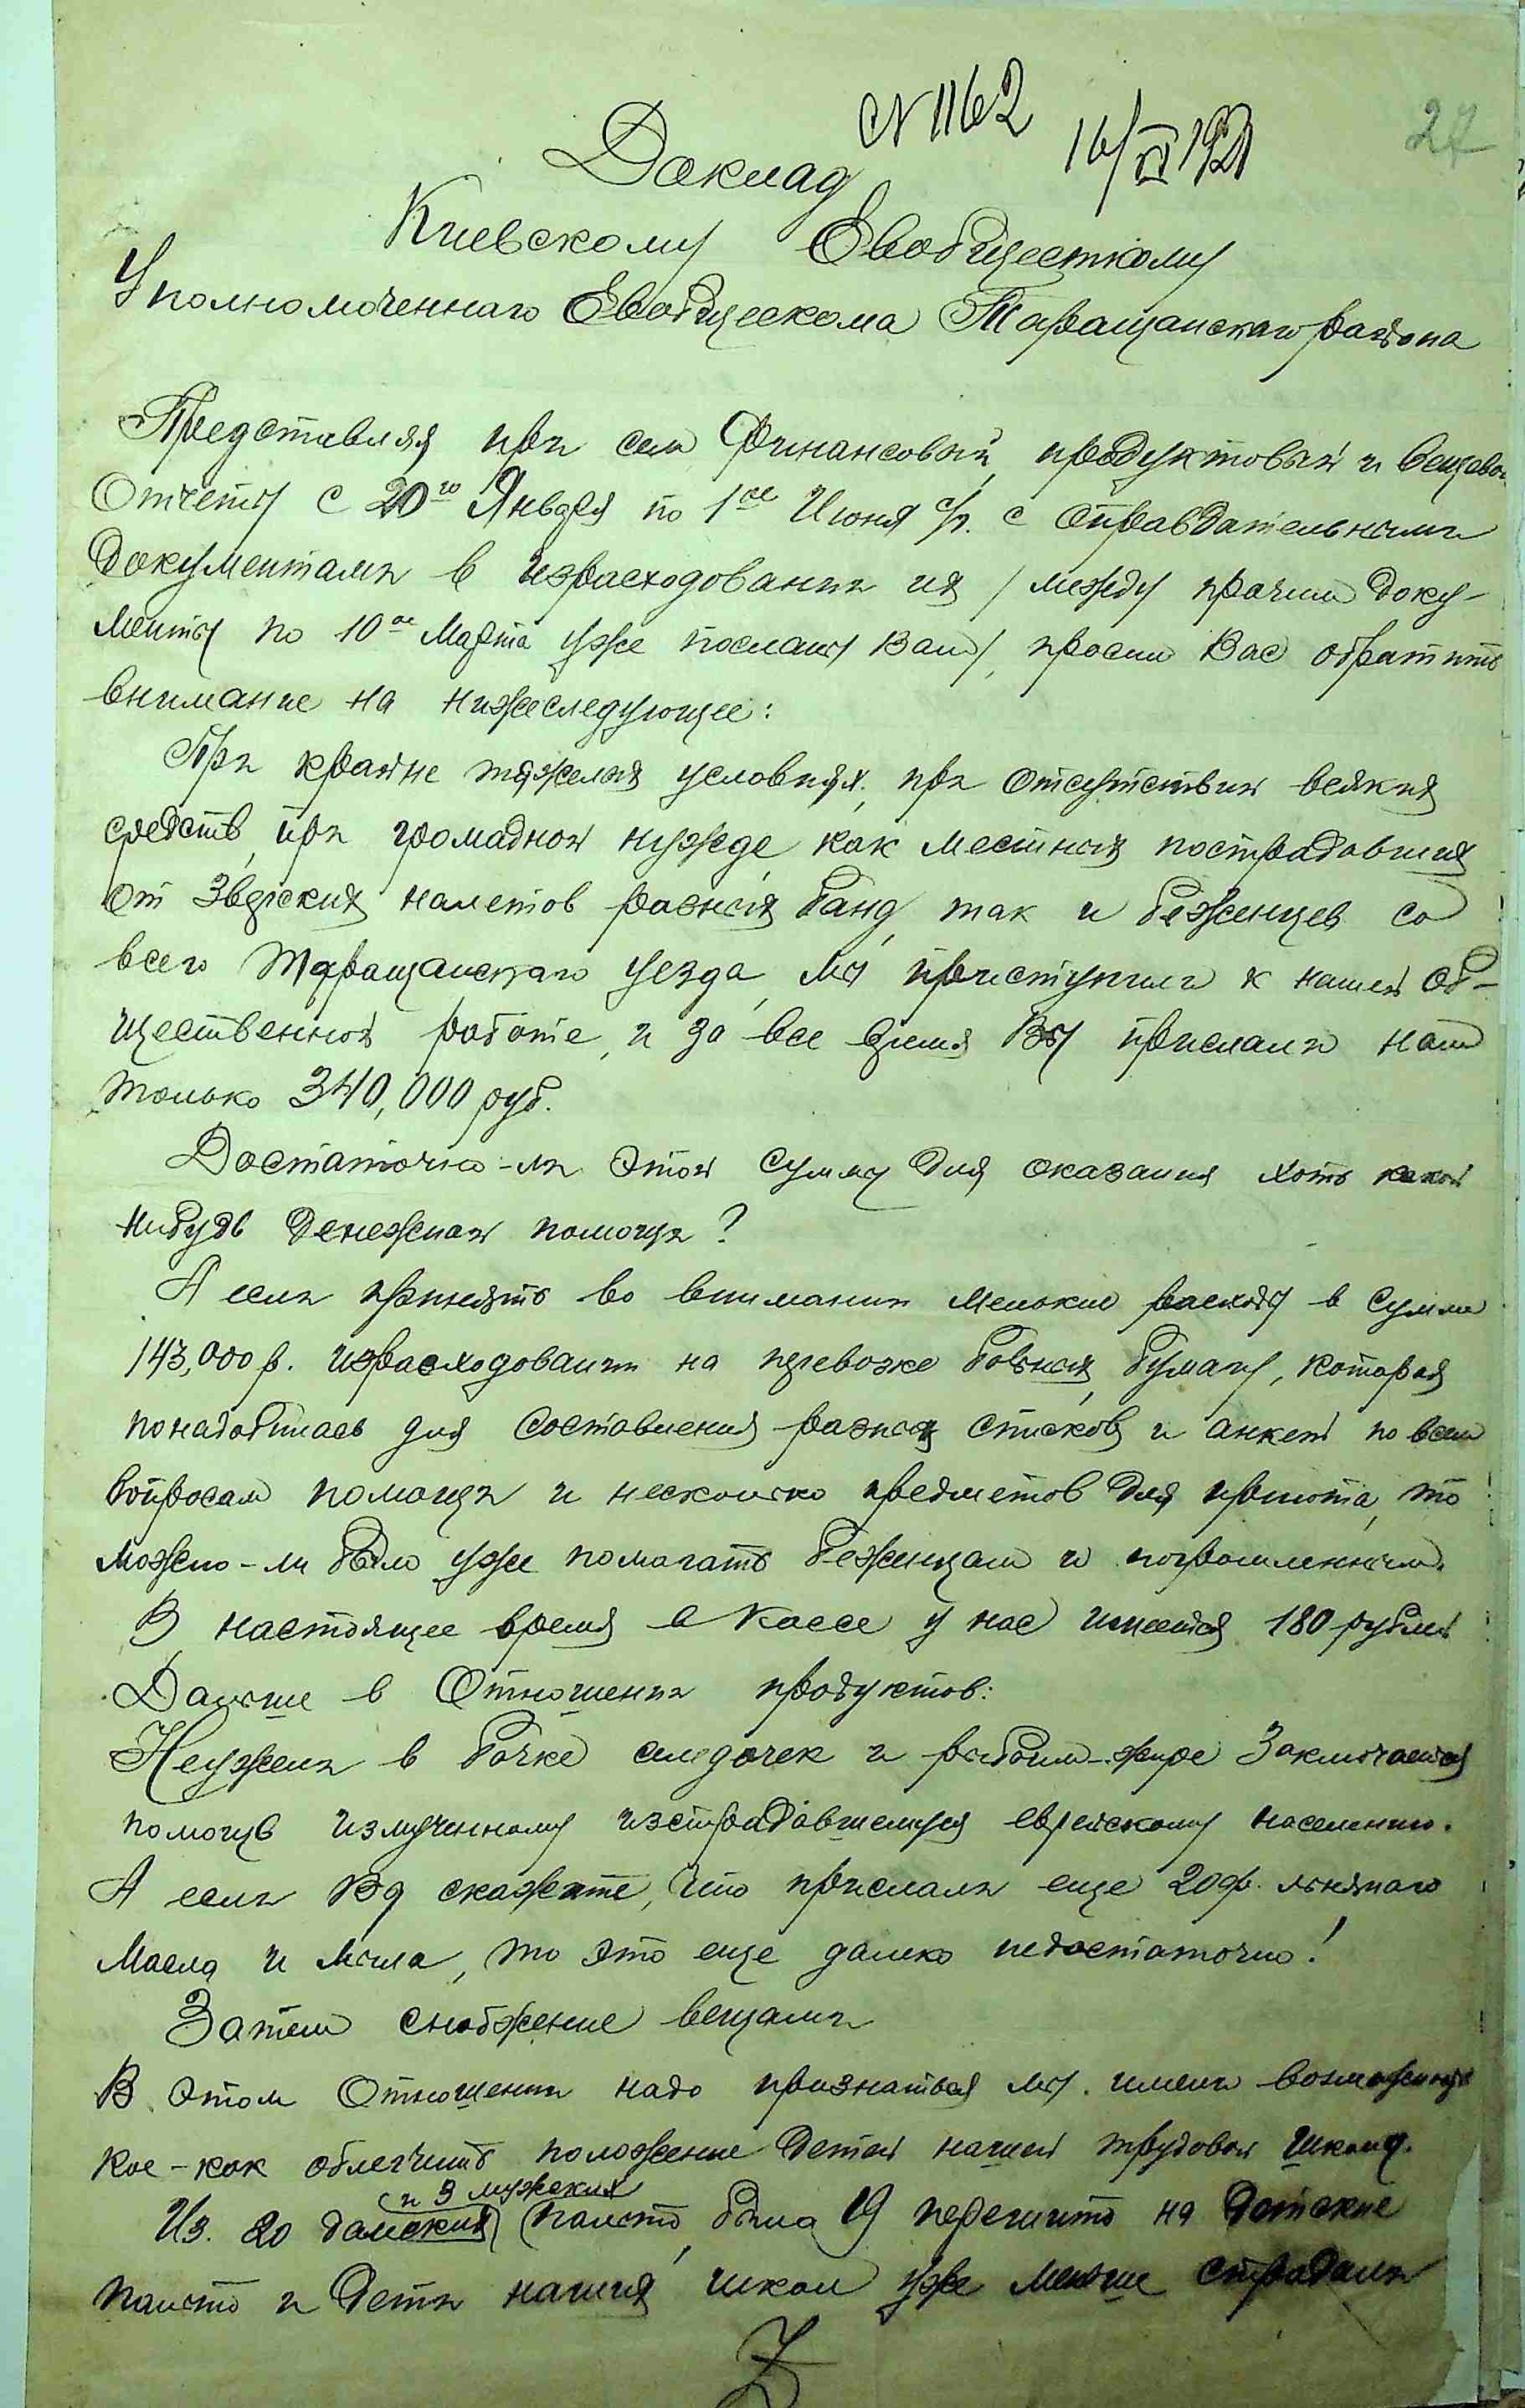 27
№ 1162
16/VI 1921
Доклад
Киевскому Евобщесткому
Уполномоченнаго Евобщескома Таращанскаго района
Представляя при сем Финансовый, продуктовый и вещевой
Отчеты с 20го Января по 1ое Июня с/г. с оправдательными
документами в израсходовании их / между прочим доку-
менты по 10ое Марта уже посланы Вам/, просим Вас обратить
внимание на нижеследующее:
При крайне тяжелых условиях, при отсутствии всяких
средств, при громадной нужде, как местных пострадавших
от Зверских налетов разных банд, так и беженцев со
всего Таращанскаго уезда, мы приступили к нашей об-
щественной работе, и за все время Вы прислали нам
только 340,000 руб.
Достаточно-ли этой суммы для оказания хоть какой
нибудь денежной помощи?
А если принять во внимании мелькие расходы в сумме
143,000 р. израсходовании на перевозке больных, бумагу, которая
понадобилась для составления разных списков и анкет по всем
вопросам помощи и несколько предметов для приюта, то
можно-ли было уже помогать беженцам и погромленным.
В настоящее время в кассе у нас имеется 180 рублей
Дальше в Отношении продуктов:
Неужели в бочке селедочек и рыбьим-жире Заключается
помощь измученному изстрадавшемуся еврейскому населению.
А если Вы скажете, что прислали еще 20ф. льняного
Масла и мыла, то это еще далеко недостаточно!
Затем снабжение вещами
В этом Отношении надо признаться мы имели возможность
кое-как облегчить положение детей нашей трудовой школы.
и 3 мужских
Из 20 дамских пальто, было 19 перешито на детские
пальто и дети наших школ уже меньше страдали